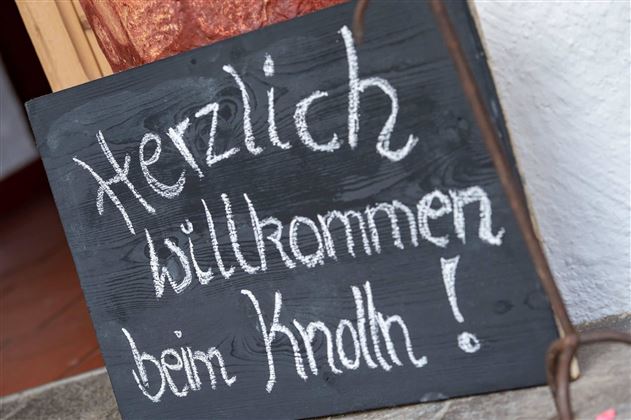 Herzlich
Willkommen
beim Knolln!